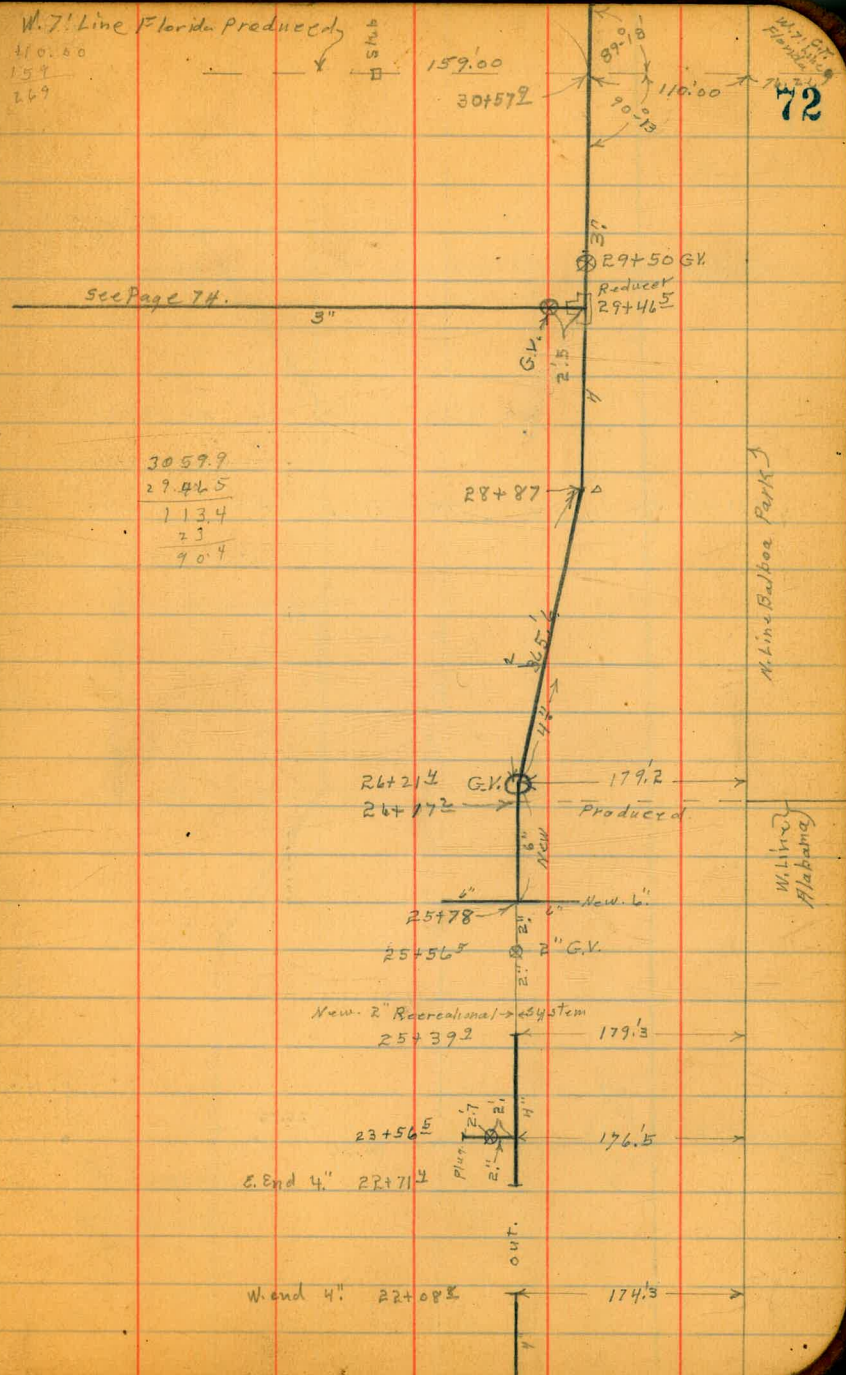 W. 7' Line Florida Produced
110.00
159
269
Stub
159.'00
W. 7' Line
Florida
72
89°-18'
30+57⁹
110.'00
90°-13
3"
29+50 G.V.
Reducer
29+46⁵
See Page 74.
3"
G.V.
2'.5
4
3059.9
29.465
113.4
23
90.4
28+87
N. Line Balboa Park
265.'6
4"
26+21⁴ G.V.
179.'2
26+17²
Produced
W. Line
Alabama
6"
New
6"
6"
New. 6"
25+78
2"
25+56⁵
2" G.V.
2"
New. 2" Recreational System
25+39²
179.'3
4"
23+56⁵
Plug
2.'7
2'
2"
176.'5
E. End 4." 22+71⁴
out.
W. end 4." 22+08⁸
174.'3
4"